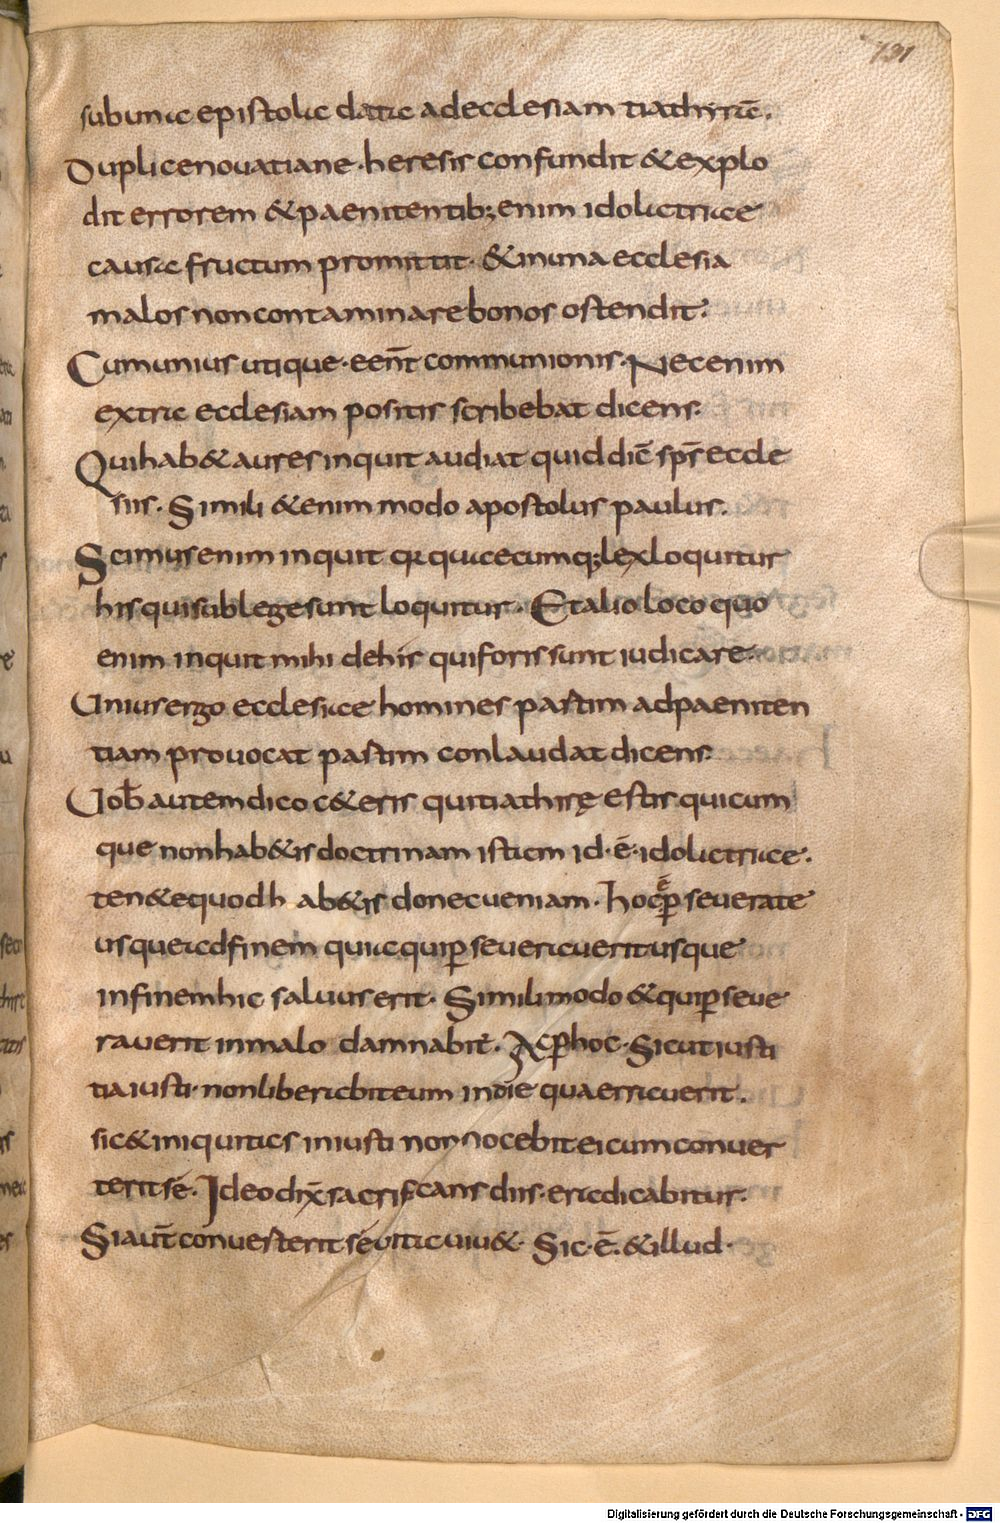 131
sub una epistola data ad ecclesiam tiathyrae.
Duplice novatiane heresis confundit & explo
dit errorem & paenitentib; enim idolatriae
causa fructum promittit. & in una ecclesia
malos non contaminare bonos ostendit.
Cum unius utique eent̄ communionis. Nec enim
extra ecclesiam positis scribebat dicens.
Qui hab& aures inquit audiat quid dic̄ sps̄ eccle
siis. Simili &enim modo apostolus paulus.
Scimus enim inquit qa quaecumq; lex loquitur
his qui sub lege sunt loquitur. Et alio loco quo
enim inquit mihi de his qui foris sunt iudicare.
Unius ergo ecclesiae homines partim ad paeniten
tiam provocat partim conlaudat dicens.
Vob̄ autem dico c&eris qui tiathirę estis quicum
que non hab&is doctrinam istam id. ē. idolatriae.
ten&e quod hab&is donec veniam. hoc ē p̱severate
usque ad finem quia qui p̱severaverit usque
in finem hic salvus erit. Simili modo & qui p̱seve
raverit in malo damnabit̄. Ac p̱ hoc. Sicut iusti
tia iusti non liberabit eum in die qua erraverit.
sic & iniquitas iniusti non nocebit ei cum conver
terit sē. Ideo dix̄ sacrificans diis eradicabitur.
Si aut̄ converterit sē vita viv&. Sic. ē. & illud.
Digitalisierung gefördert durch die Deutsche Forschungsgemeinschaft - DFG